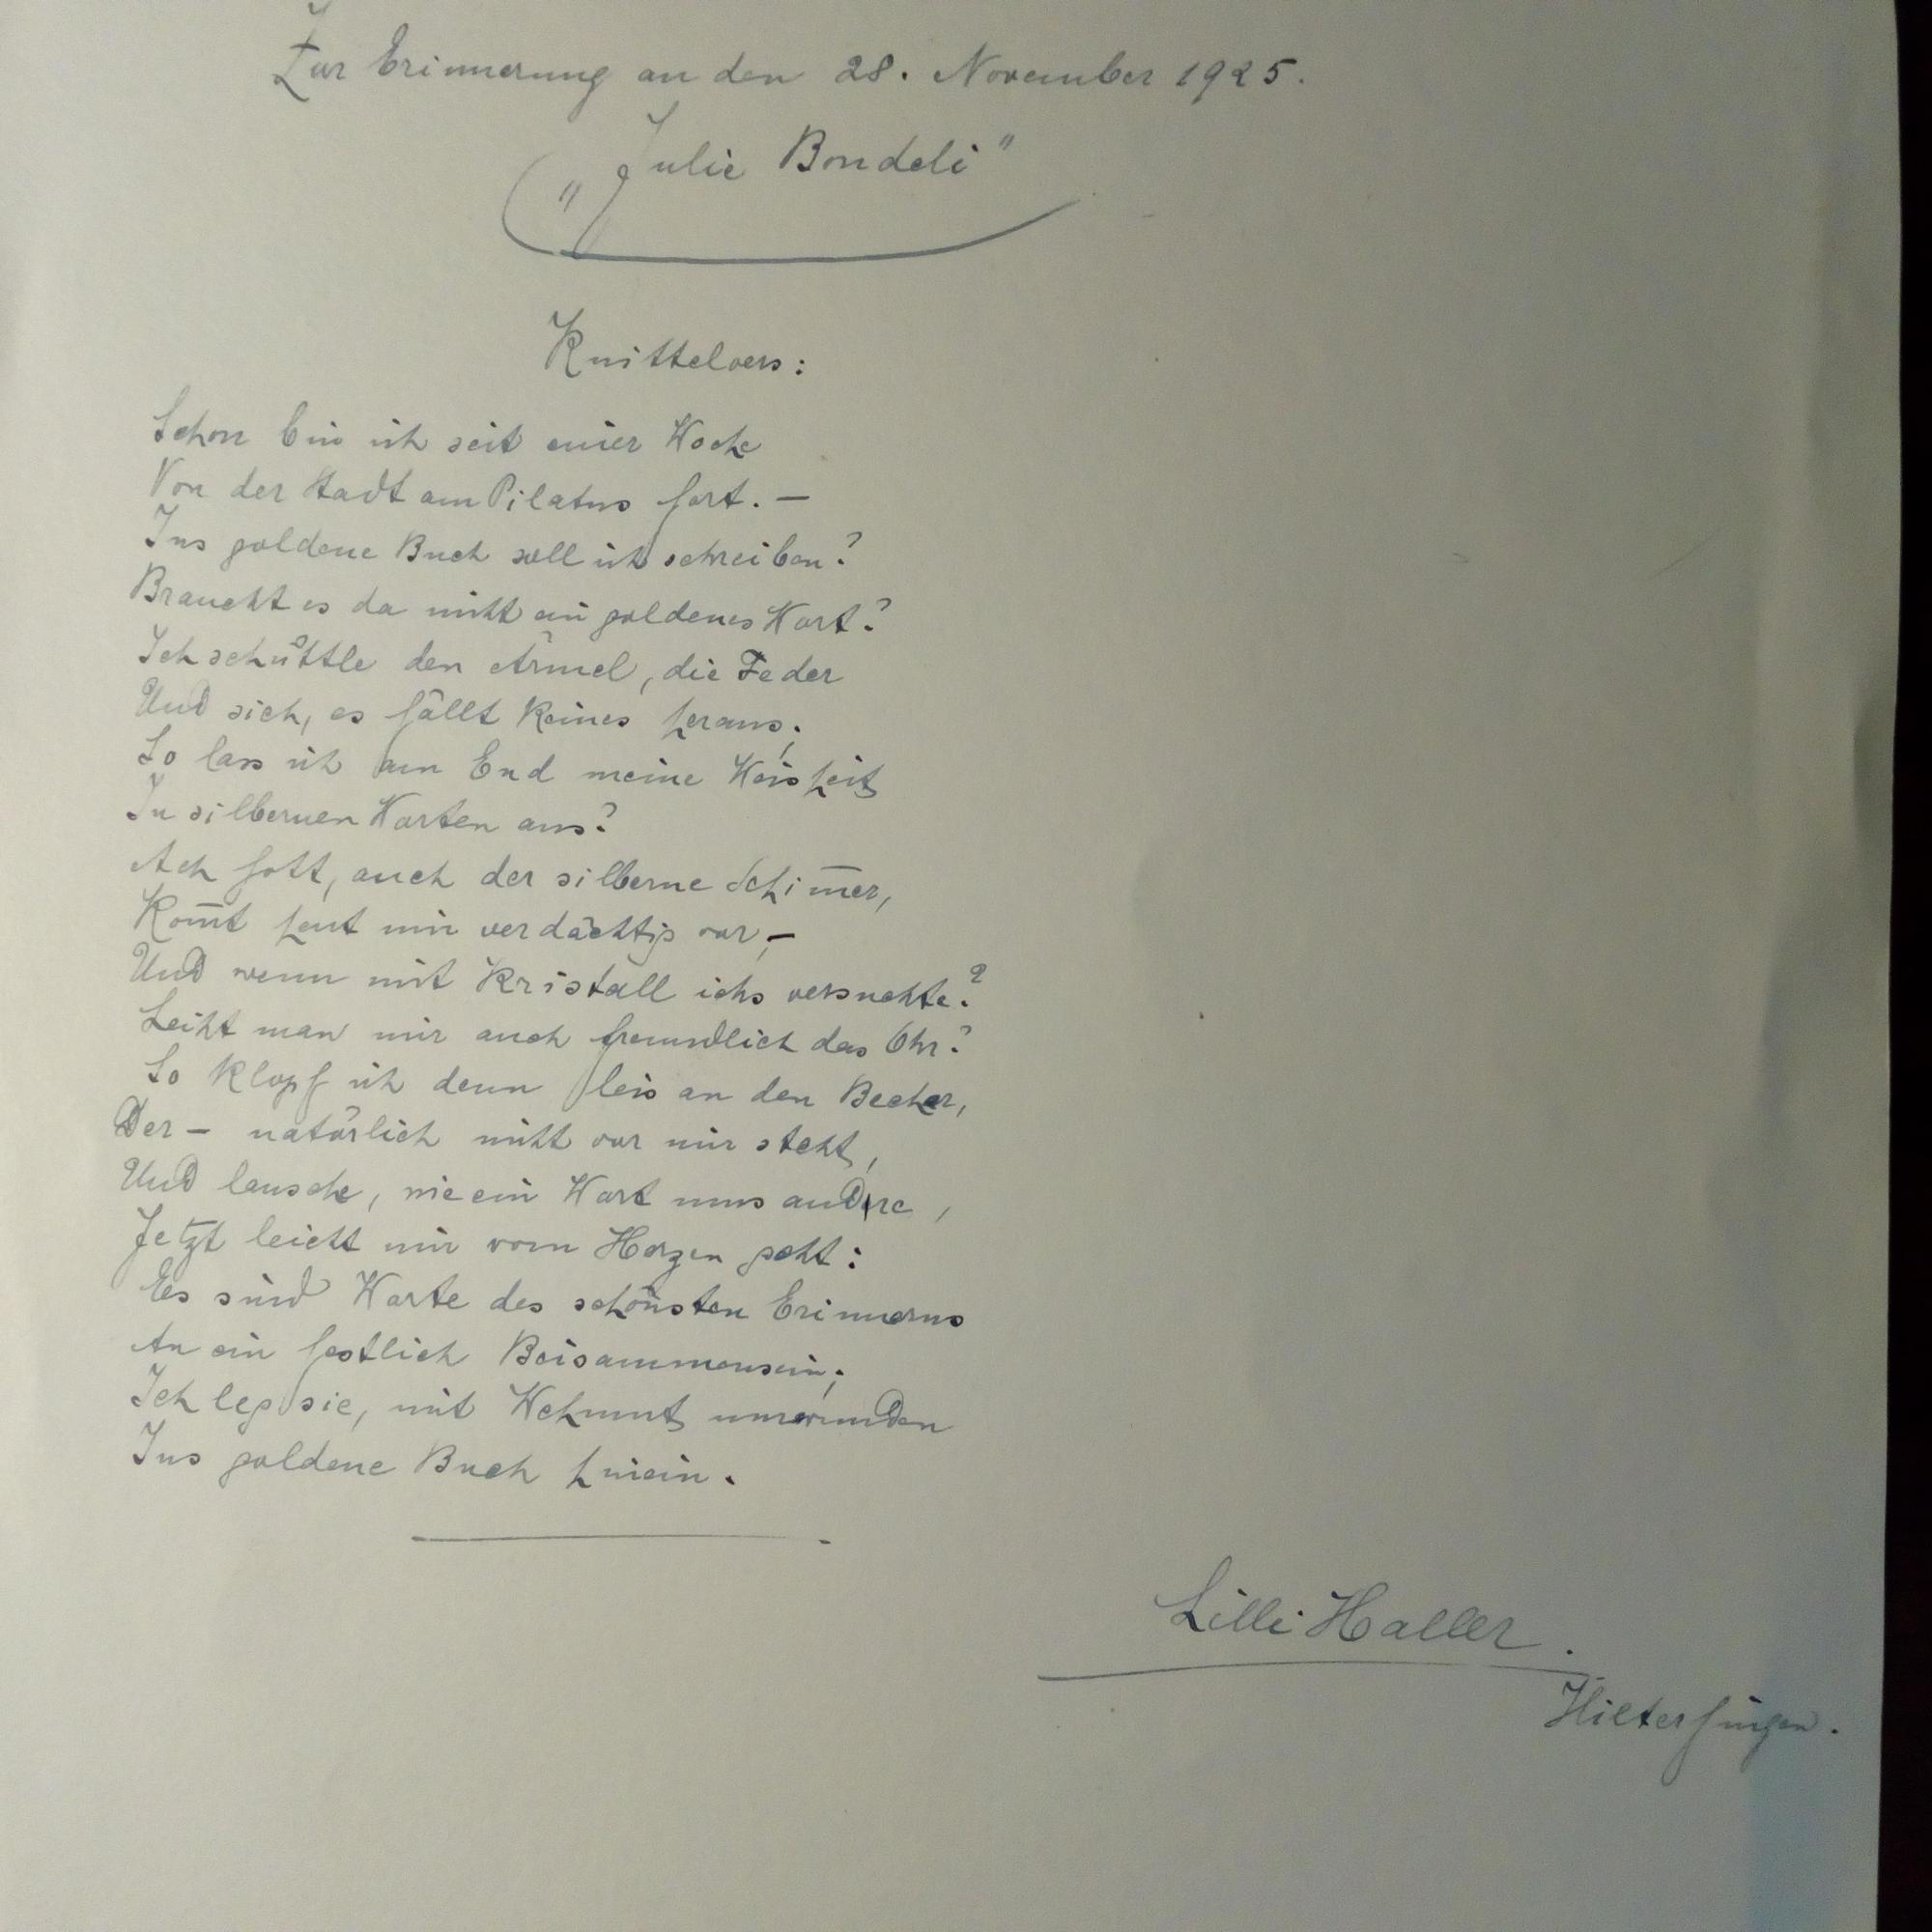 Zur Erinnerung an den 28. November 1925.
("Julie Bondeli"
Knittelvers:
Schon bin ich seit einer Woche
Von der Stadt am Pilatus fort. —
Ins goldene Buch soll ich schreiben?
Braucht es da nicht ein goldenes Wort?
Ich schüttle den Ärmel, die Feder
Und sieh, es fällt keines heraus;
So lass ich am End meine Weisheit
In silbernen Worten aus?
Ach Gott, auch der silberne Schim̅er,
Kom̅t heut mir verdächtig vor, —
Und wenn mit Kristall ichs versuchte?
Leiht man mir auch freundlich das Ohr?
So klopf ich denn leis an den Becher,
Der — natürlich nicht vor mir steht,
Und lausche, wie ein Wort ums andere,
Jetzt leicht mir vom Herzen geht:
Es sind Worte des schönsten Erinnerns
An ein festlich Beisammensein;
Ich leg sie, mit Wehmut umwunden
Ins goldene Buch hinein.
Lilli Haller.
Hilterfingen.